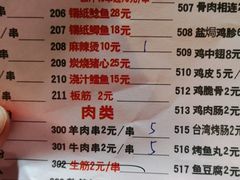 串
206 锡纸鲶鱼28元
207 锡纸鲫鱼18元
208 麻辣烫10元 1
209 炭烧猪心25元
210 浇汁鳕鱼15元
211 板筋 2元/串
肉类
300 羊肉串2元/串 5
301 牛肉串2元/串 5
302 生筋2元/串
507 骨肉相连2元
508 盐焗鸡胗2元
509 鸡中翅8元
510 鸡皮5元/串
512 鸡脆骨2元
513 鸡肉肠2元
517 台湾烤肠2元
516 烤鱼丸2元
517 鱼豆腐2元